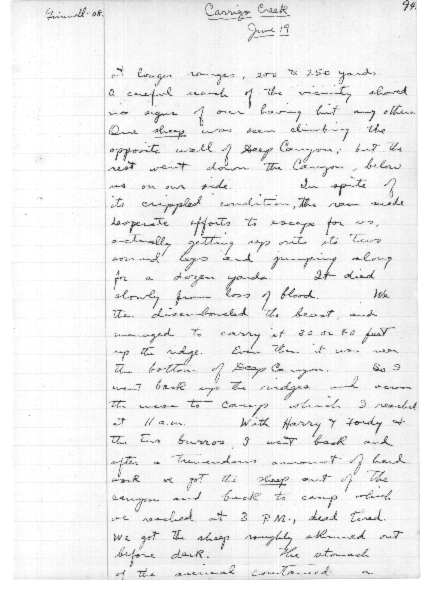 Grinnell-08.
Carrizo Creek
94.
June 19
at longer ranges, 200 to 250 yards.
A careful search of the vicinity showed
no signs of our having hit any others.
One sheep was seen climbing the
opposite wall of Deep Canyon; but the
rest went down the Canyon, below
us on our side. In spite of
its crippled condition, the ram made
desperate efforts to escape from us,
actually getting up onto its two
sound legs and jumping along
for a dozen yards. It died
slowly from loss of blood. We
then disemboweled the beast, and
managed to carry it 30 or 40 feet
up the ridge. Even then it was near
the bottom of Deep Canyon. So I
went back up the ridges and across
the mesa to camp which I reached
at 11 a.m. With Harry &
the two burros, I went back and
after a tremendous amount of hard
work we got the sheep out of the
canyon and back to camp which
we reached at 3 P.M., dead tired.
We got the sheep roughly skinned out
before dark. The stomach
of the animal contained a